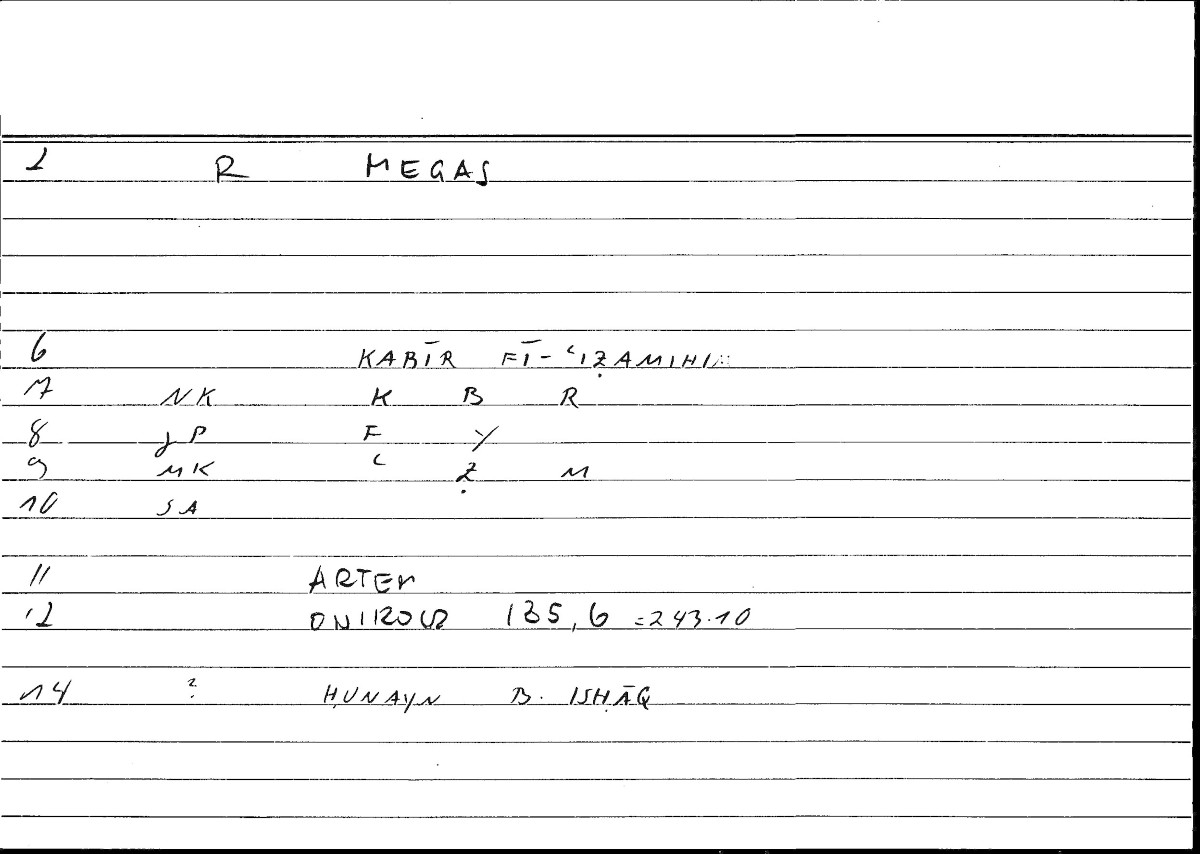 1 R MEGAS
6 KABĪR FĪ-ʿIẒAMIHI
7 NK K B R
8 JP F Y
9 MK ʿ Ẓ M
10 SA
11 ARTEM
12 ONIROCR 135,6 =243.10
14 ? ḤUNAYN B. ISḤĀQ